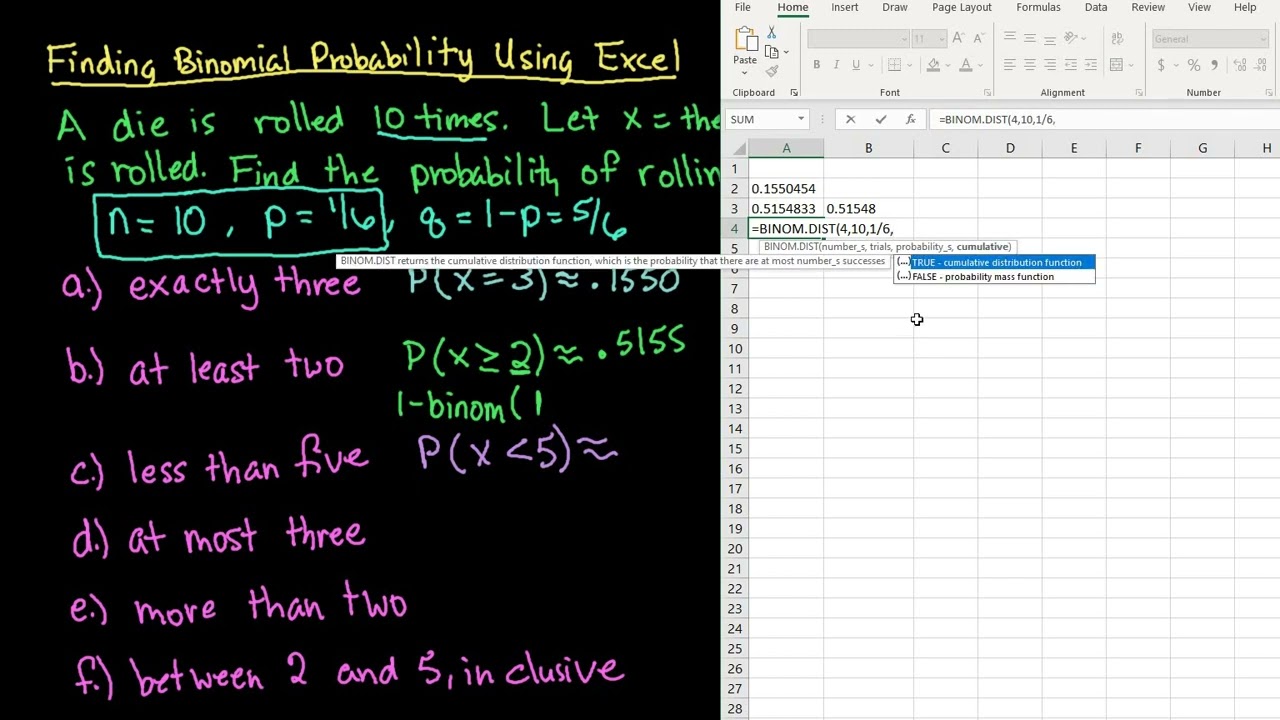 Finding Binomial Probability Using Excel
A die is rolled 10 times. Let x = the
is rolled. Find the probability of rollin
n = 10 , p = 1/6, q = 1-p = 5/6
a.) exactly three P(x = 3) ≈ .1550
b.) at least two P(x ≥ 2) ≈ .5155
1-binom( 1
c.) less than five P(x < 5) ≈
d.) at most three
e.) more than two
f.) between 2 and 5, inclusive
File Home Insert Draw Page Layout Formulas Data Review View Help
Paste
11 A A
B I U A
ab
General
$ % ,
Clipboard Font Alignment Number
SUM fx =BINOM.DIST(4,10,1/6,
A B C D E F G H
1
2 0.1550454
3 0.5154833 0.51548
4 =BINOM.DIST(4,10,1/6,
5 BINOM.DIST(number_s, trials, probability_s, cumulative)
BINOM.DIST returns the cumulative distribution function, which is the probability that there are at most number_s successes
(...) TRUE - cumulative distribution function
(...) FALSE - probability mass function
7
8
9
10
11
12
13
14
15
16
17
18
19
20
21
22
23
24
25
26
27
28